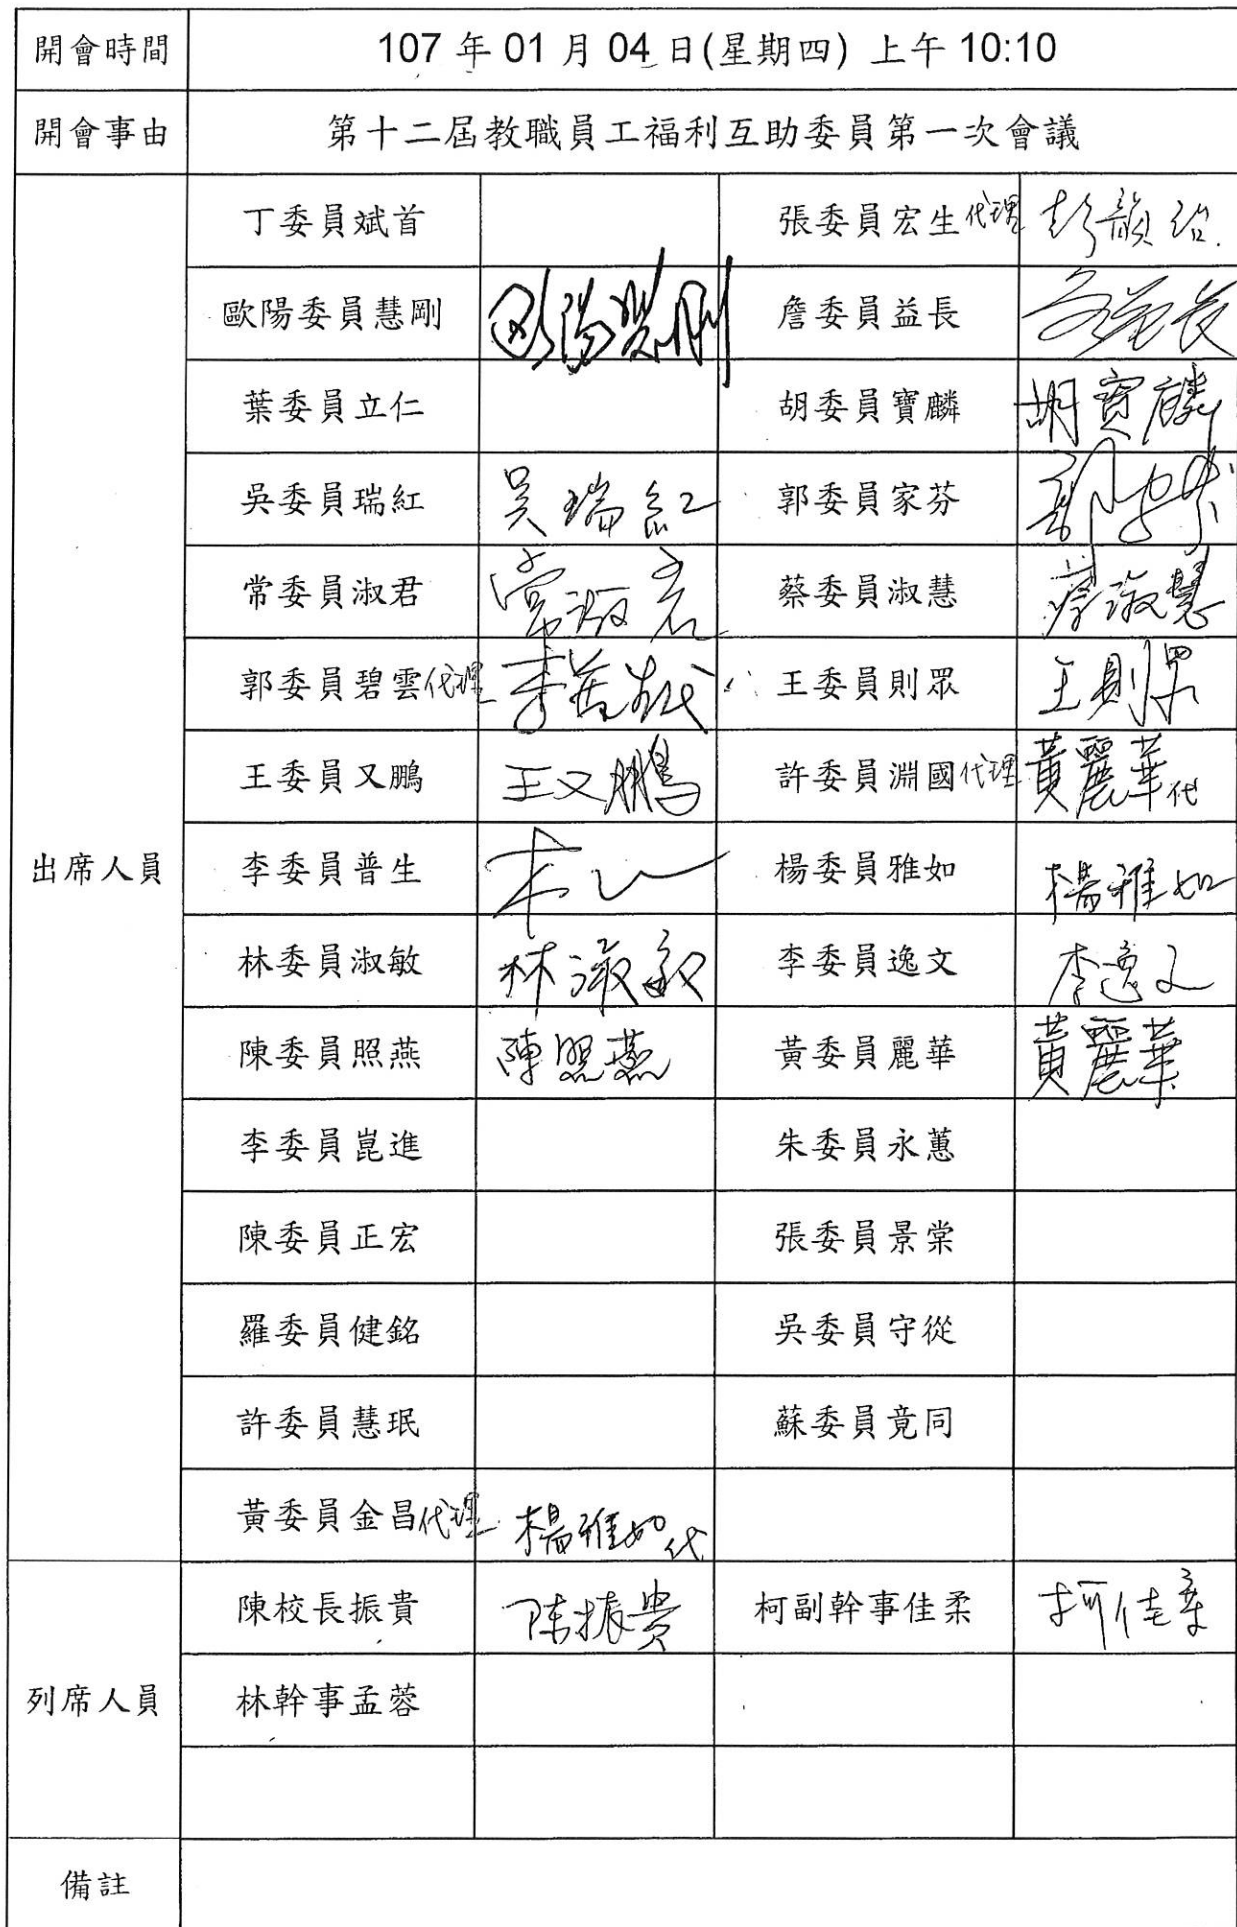 開會時間 107 年 01 月 04 日(星期四) 上午 10:10
開會事由 第十二屆教職員工福利互助委員第一次會議
出席人員
丁委員斌首 張委員宏生代理 彭韻治
歐陽委員慧剛 歐陽慧剛 詹委員益長
葉委員立仁 胡委員寶麟 胡寶麟
吳委員瑞紅 吳瑞紅 郭委員家芬 郭家芬
常委員淑君 常淑君 蔡委員淑慧 蔡淑慧
郭委員碧雲代理 王委員則眾 王則眾
王委員又鵬 王又鵬 許委員淵國代理 黃麗華代
李委員普生 楊委員雅如 楊雅如
林委員淑敏 林淑敏 李委員逸文 李逸文
陳委員照燕 陳照燕 黃委員麗華 黃麗華
李委員崑進 朱委員永蕙
陳委員正宏 張委員景棠
羅委員健銘 吳委員守從
許委員慧珉 蘇委員竟同
黃委員金昌代理 楊雅如代
列席人員
陳校長振貴 陳振貴 柯副幹事佳柔 柯佳柔
林幹事孟蓉
備註